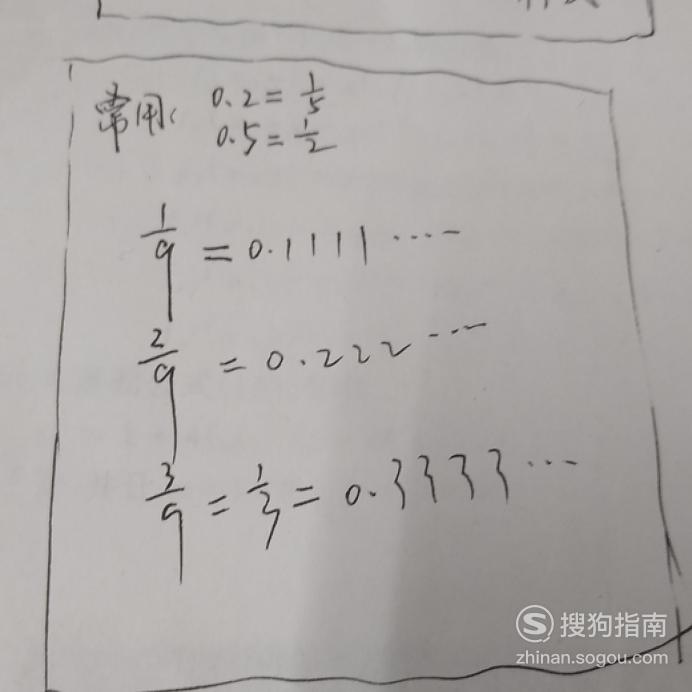 常用: 0.2 = 1/5
0.5 = 1/2
1/9 = 0.1111……
2/9 = 0.222……
3/9 = 1/3 = 0.3333…
S 搜狗指南
zhinan.sogou.com